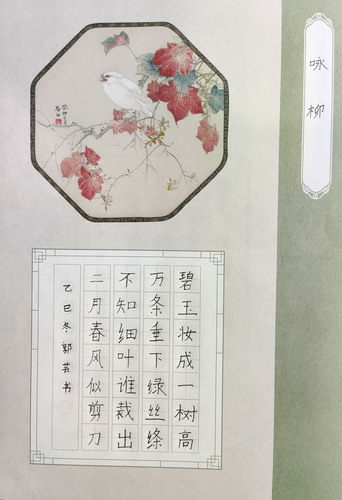 咏柳
碧玉妆成一树高
万条垂下绿丝绦
不知细叶谁裁出
二月春风似剪刀
乙巳冬郭芸书